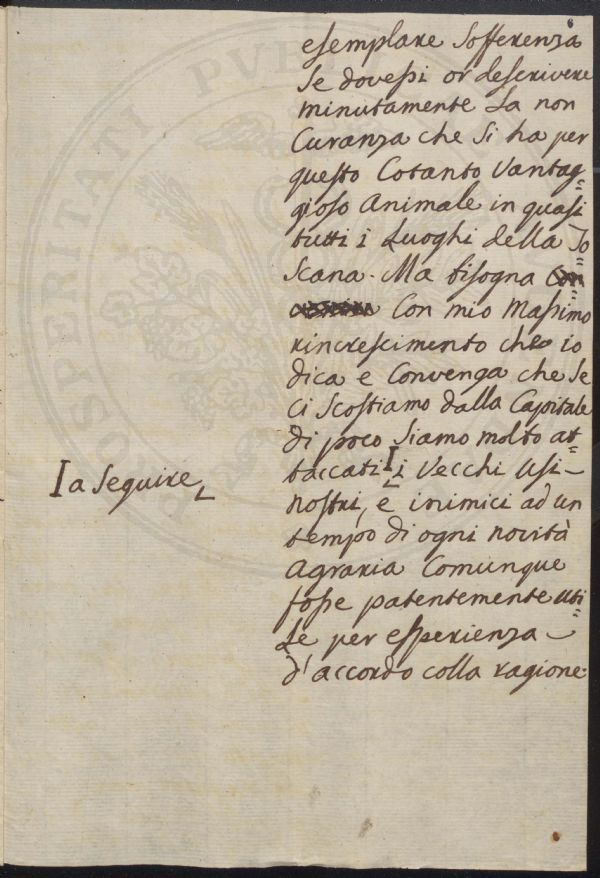 6
esemplare Sofferenza
Se dovessi or descrivere
minutamente La non
Curanza che Si ha per
questo Cotanto Vantag=
gioso Animale in quasi
tutti i Luoghi della To=
Scana. Ma bisogna Con
Con mio Massimo
rincrescimento che io
dica e Convenga che Se
Ci Scostiamo dalla Capitale
di poco Siamo molto at=
taccati i Vecchi Usi
nostri, e inimici ad un
tempo di ogni novità
Agraria Comunque
fosse patentemente uti=
Le per essperienza
d'accordo colla ragione.
a Seguire
PROSPERITATI PUBL